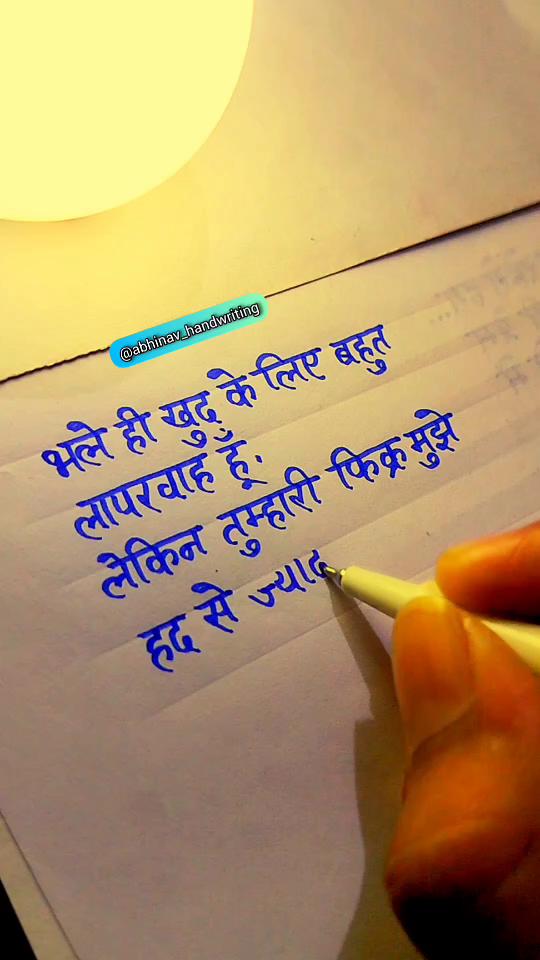 @abhinav_handwriting
भले ही खुद के लिए बहुत
लापरवाह हूँ.
लेकिन तुम्हारी फिक्र मुझे
हद से ज्याद